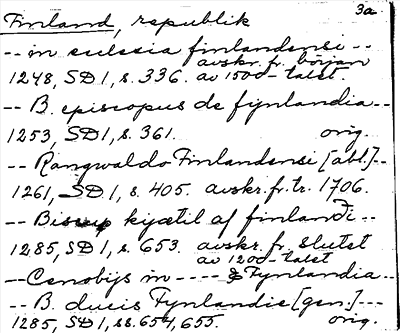 3a
Finland, republik
-- in ecclesia finlandensi --
1248, SD 1, s. 336. avskr. fr. början
av 1500-talet.
-- B. episcopus de fynlandia --
1253, SD 1, s. 361. orig.
-- Rangwaldo Finlandensi [abl.] --
1261, SD 1, s. 405. avskr. fr. tr. 1706.
-- Biscup kyætil af finlandi --
1285, SD 1, s. 653. avskr. fr. slutet
av 1200-talet
-- Cenobijs in ---- Fynlandia --
-- B. ducis Fynlandie [gen.] ---
1285, SD 1, ss. 654, 655. orig.